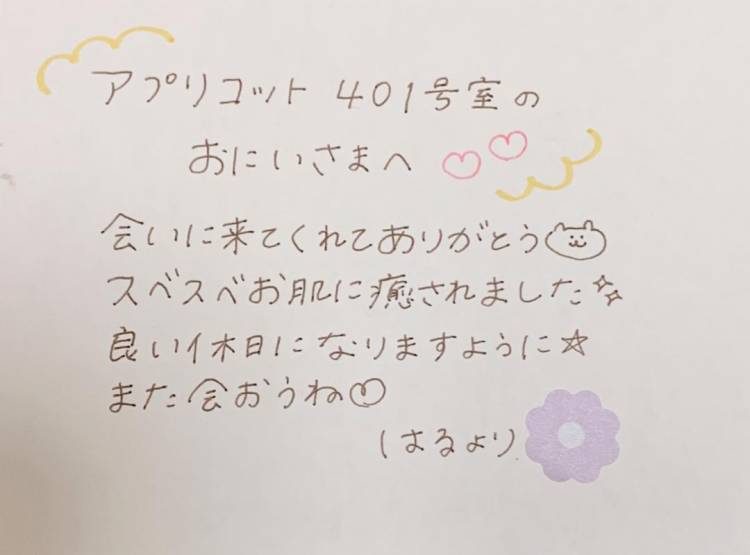 アプリコット 401号室の
おにいさまへ
会いに来てくれてありがとう
スベスベお肌に癒されました
良い休日になりますように☆
また会おうね♡
はるより